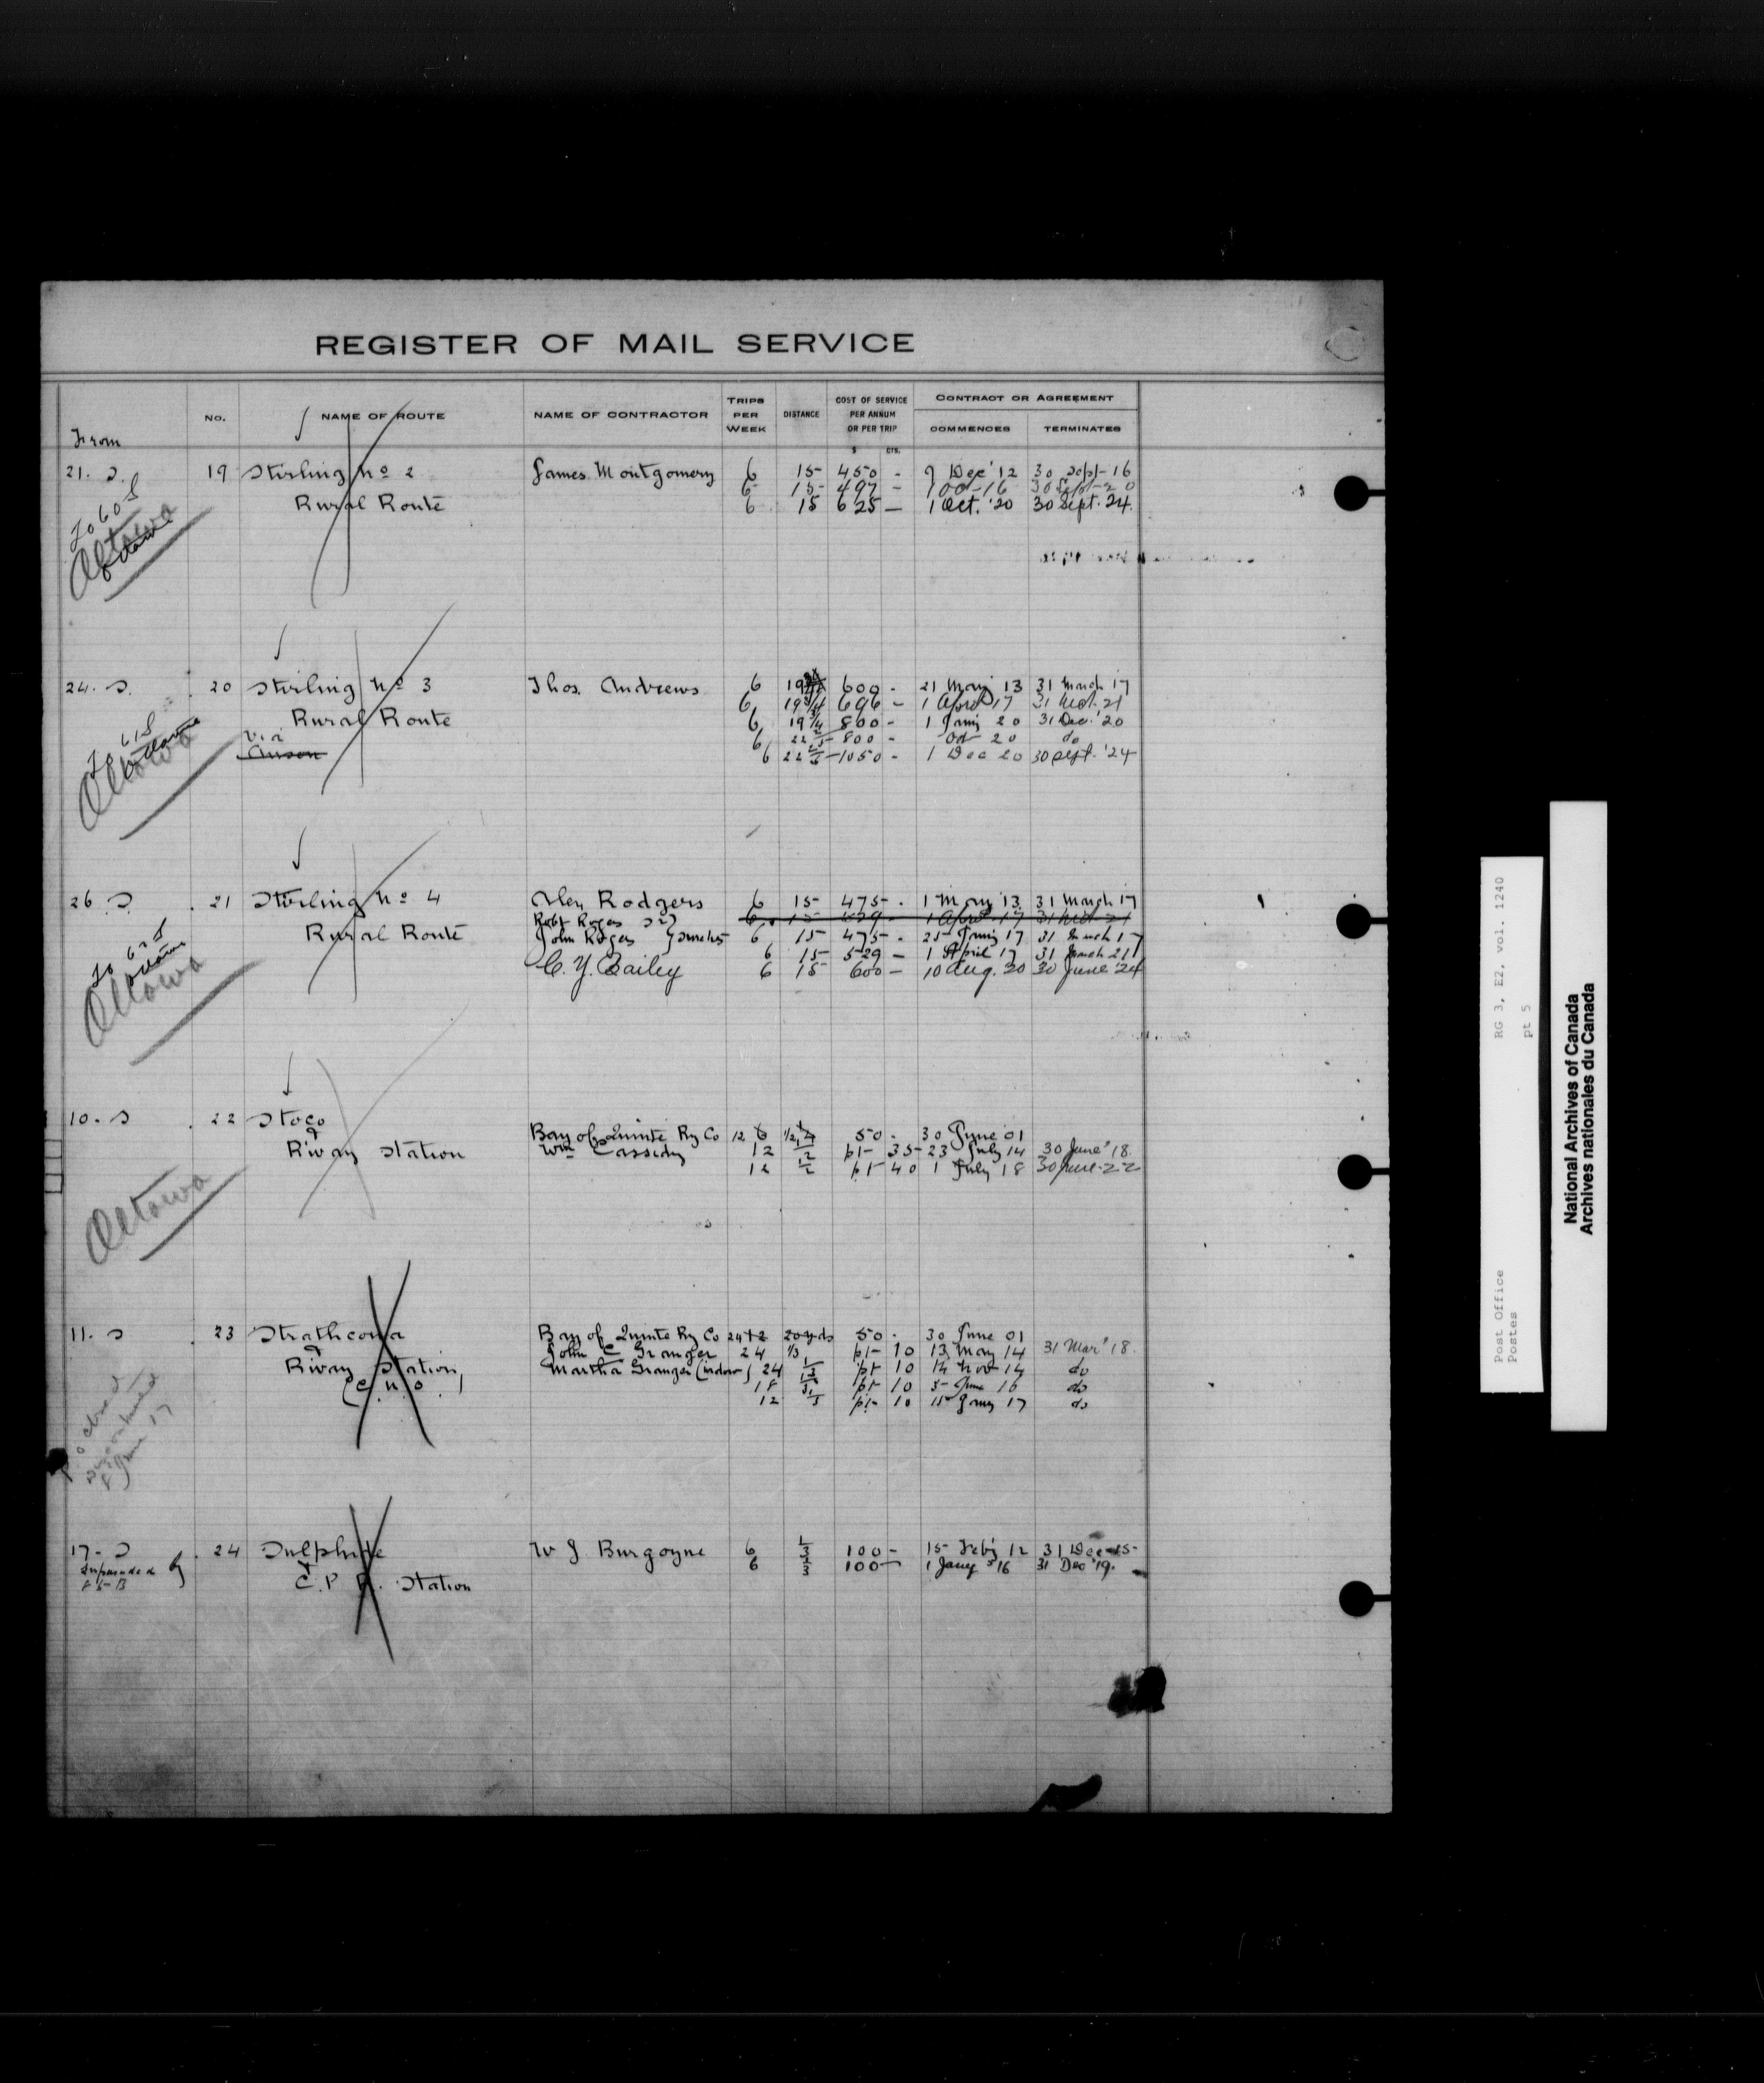 REGISTER OF MAIL SERVICE
From No. NAME OF ROUTE NAME OF CONTRACTOR TRIPS PER WEEK DISTANCE COST OF SERVICE PER ANNUM OR PER TRIP $ CTS. CONTRACT OR AGREEMENT COMMENCES TERMINATES
21. S. 19 Stirling No 2 James Montgomery 6 15 450 - 9 Dec '12 30 Sept 16
6 15 497 - 1 Oct 16 30 Sept 20
Rural Route 6 15 625 — 1 Oct. '20 30 Sept. 24.
To 60 S
Ottawa
24. S. 20 Stirling No 3 Thos. Andrews 6 19 600 - 21 May 13 31 March 17
6 19 3/4 696 - 1 April 17 31 Mch 21
Rural Route 6 19 3/4 800 - 1 Jany 20 31 Dec. '20
via 6 22 2/5 800 - Oct 20 do
Anson 6 22 2/5 1050 - 1 Dec 20 30 Sept. '24
To 61 S
Ottawa
26 S. 21 Stirling No 4 Alex Rodgers 6 15 475 - 1 May 13 31 March 17
Robt Rogers 6 15 529 - 1 April 17 31 Mch 21
Rural Route John Rogers } Sureties 6 15 475 - 25 Jany 17 31 March 17
6 15 529 - 1 April 17 31 March 21
C. Y. Bailey 6 15 600 — 10 Aug. 20 30 June '24
To 62 S
Ottawa
10. S 22 Stoco
& Bay of Quinte Ry Co 12 6 1/2 50 - 30 June 01
R'way Station Wm Cassidy 12 1/2 pt 35 23 July 14 30 June '18
12 1/2 pt 40 1 July 18 30 June 22
Ottawa
11. S 23 Strathcona Bay of Quinte Ry Co 24 12 20 yds 50 - 30 June 01
& John C Granger 24 1/3 pt 10 13 May 14 31 Mar' 18.
R'way Station Martha Granger (widow) 24 1/3 pt 10 14 Nov 14 do
(C. N. O.) 18 1/3 pt 10 5 June 16 do
12 1/3 pt 10 15 Jany 17 do
P. O closed
Discontinued
June 17
17. S 24 Sulphide W J Burgoyne 6 1/3 100 - 15 Feby 12 31 Dec 15
6 1/3 100 — 1 Jany '16 31 Dec '19.
& C. P R. Station
Post Office
Postes
RG 3, E2, vol. 1240
pt 5
National Archives of Canada
Archives nationales du Canada